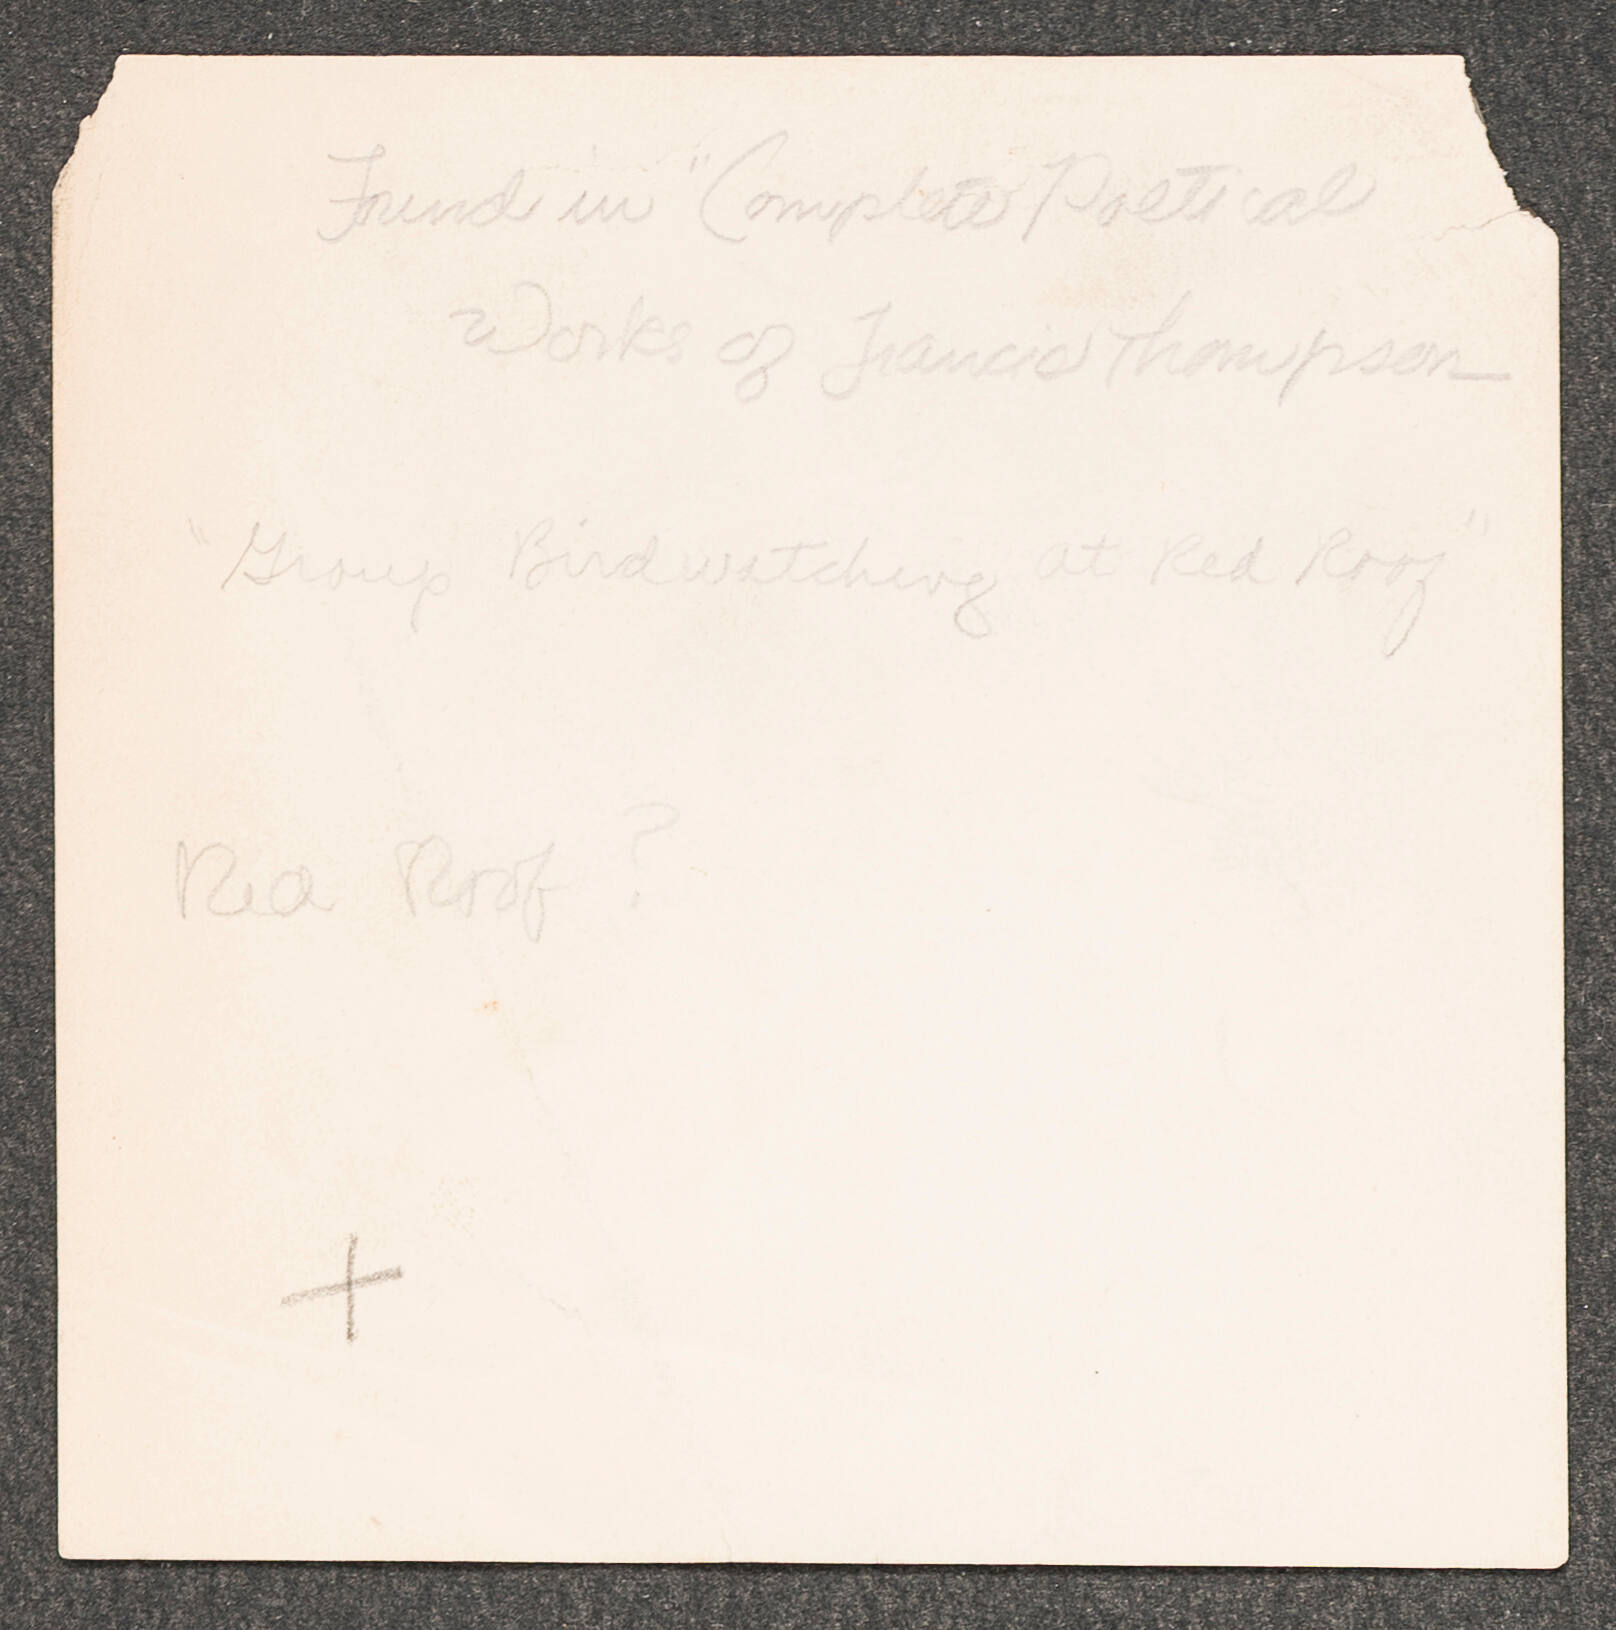 Found in "Complete Poetical
Works of Francis Thompson
"Group Birdwatching at Red Roof"
Red Roof ?
+